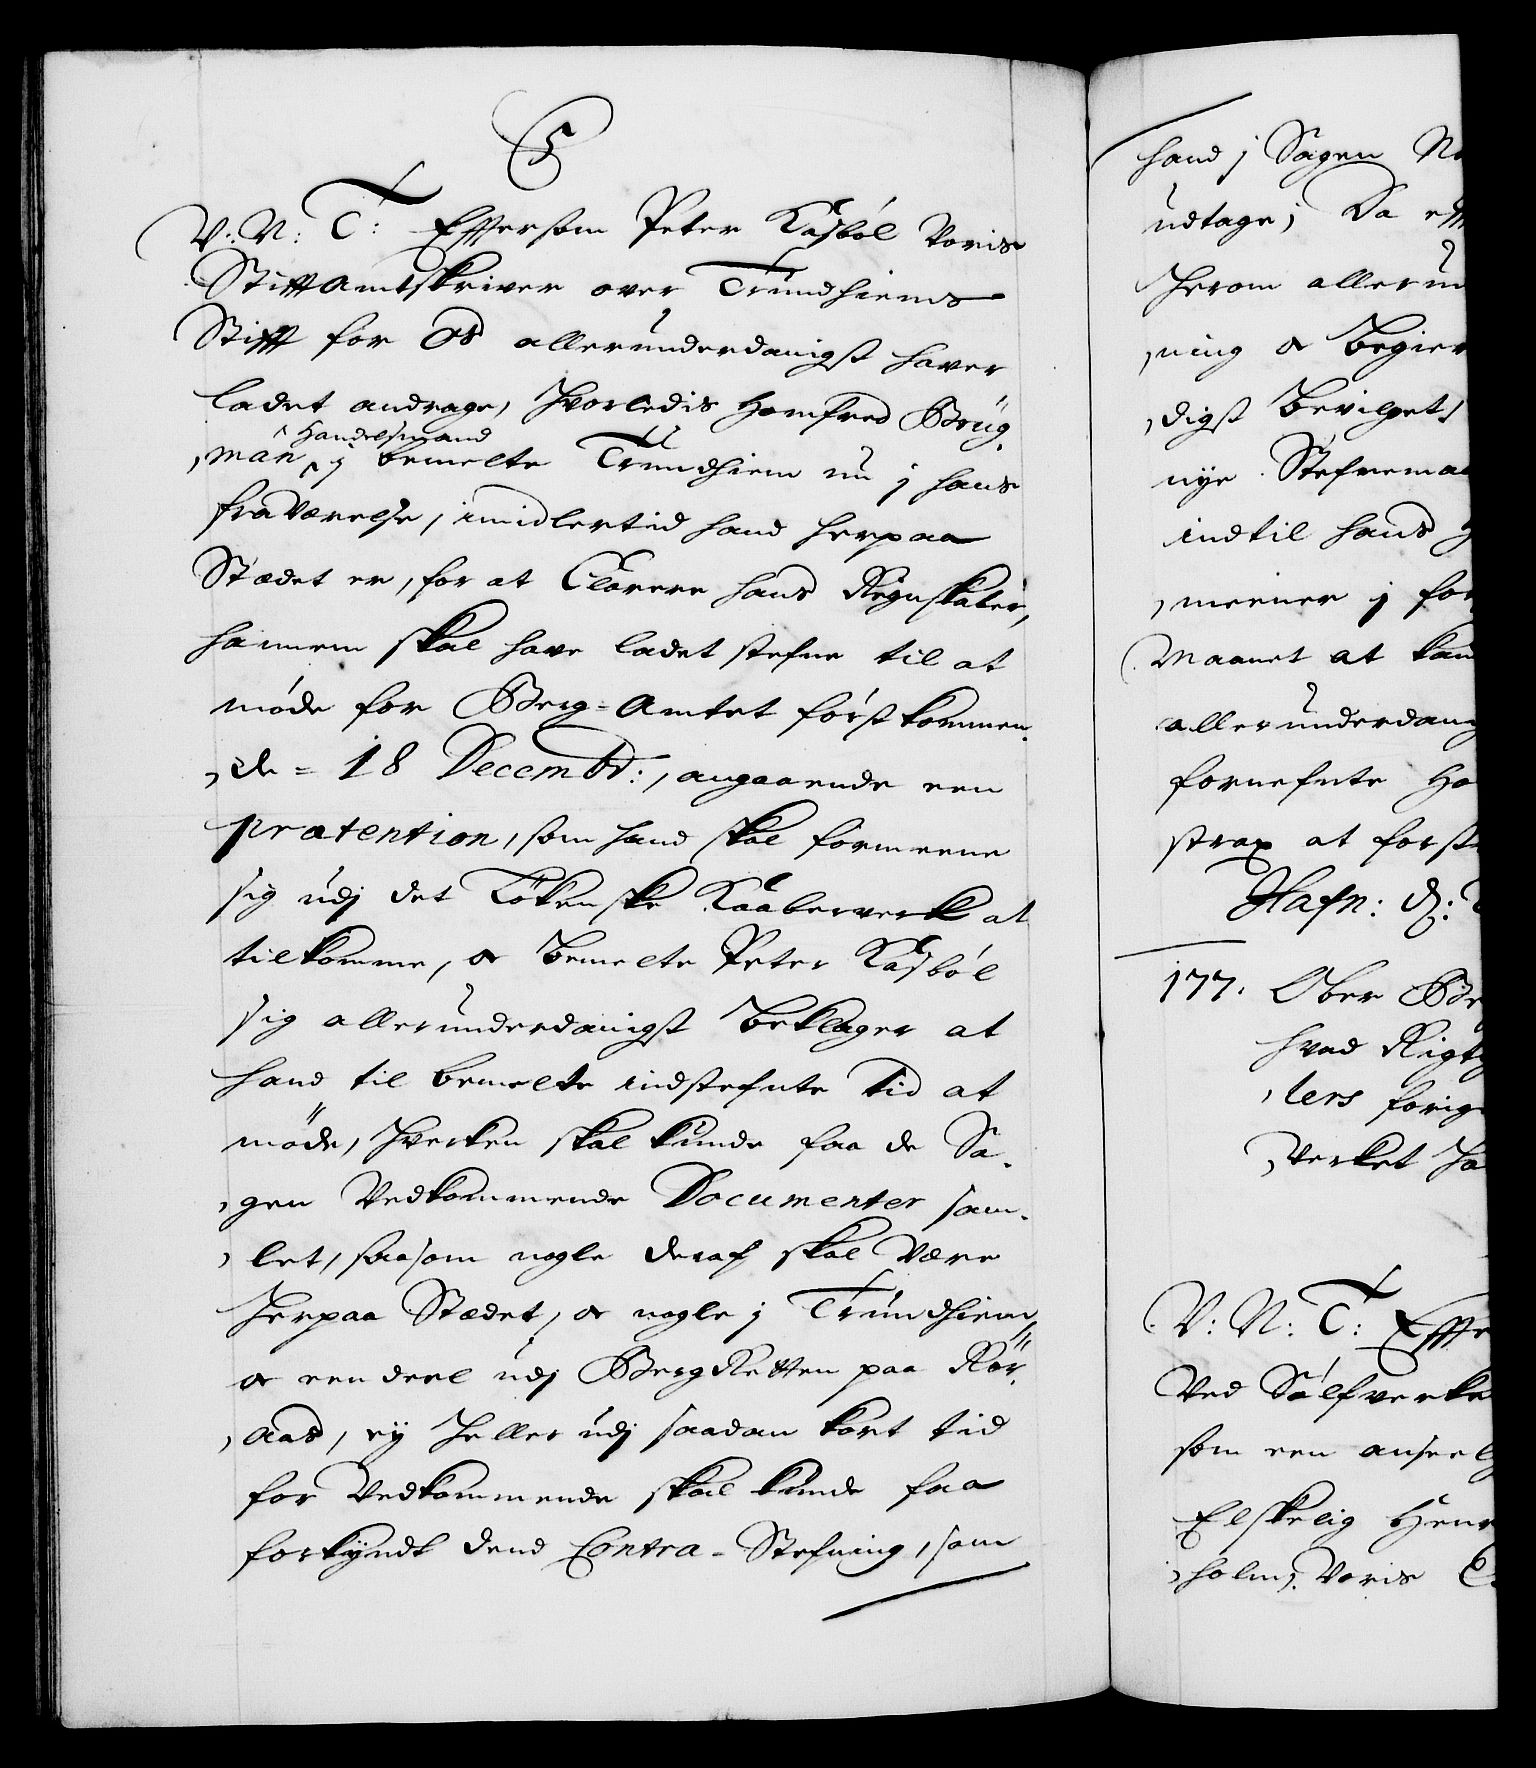 5
V: N: T: Effersom Peter Kasbøl Voris
StifftAmtskriver over Trundhiems
Stifft for Os allerunderdanigst haver
ladet andrage, Hvorledis Homfred Brüg-
mãn Handelsmand j bemelte Trundhiem nu j hans
fraværelse, imidlertid hand herpaa
Stædet er, for at Clarere hans Regnskaber,
hannem skal have ladet stefne til at
møde for Berg-Amtet førstkommen-
de = 18 Decembr:, angaaende een
prætention, som hand skal formeene
sig udj det Løkenske Kaaberverk at
tilkomme, og bemelte Peter Kasbøl
sig allerunderdanigst beklager at
hand til bemelte indstefnte tid at
møde, Hverken skal kunde faa de Sa-
gen Vedkommende Documenter sam-
let, saasom nogle deraf skal være
Herpaa Stædet, og nogle j Trundhiem,
og een deel udj BergRetten paa Rør-
aas, ey Heller udj saadan kort tid
for Vedkommende skal kunde faa
forkyndt dend Contra-Stefning, som
hand j Sagen
udtage; Da
Herom allerun
ning og Begier
digst bevilget,
nye Stefnema
indtil hans
meener j for
Maanet at kan
allerunderdanig
fornefnte Ho
strax at forst
Hafn: d:
177. Ober Be
hvad Rigt
ters forig
Verket Ha
V: N: T: Effe
Ved Sølfverke
som een anseel
Elskelig Hen
holm, Voris